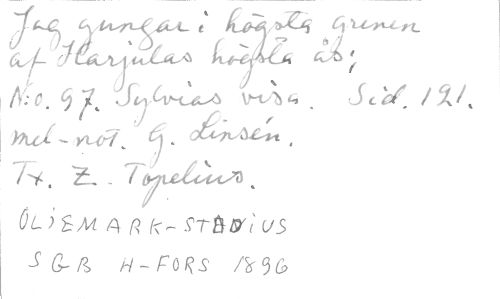 Jag gungar i högsta grenen
af Harjulas högsta ås;
N:o. 97. Sylvias visa. Sid. 121.
mel-not. G. Linsén.
Tx. Z. Topelius.
OLIEMARK-STADIUS
SGB H-FORS 1896